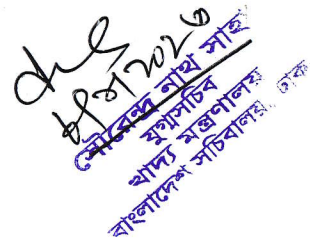 সৌরেন্দ্র নাথ সাহা
যুগ্মসচিব
খাদ্য মন্ত্রণালয়
বাংলাদেশ সচিবালয়, ঢাকা